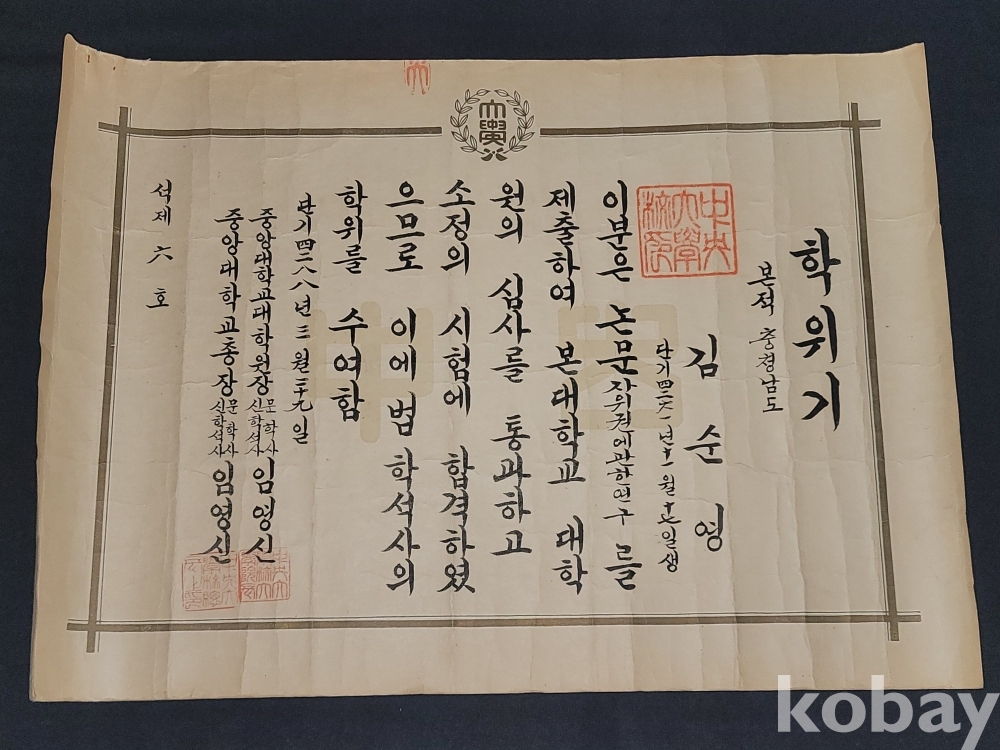 大學
학위기
본적 충청남도
김순영
단기四二六一년十一월十七일생
이분은 논문자위권에관한연구를
제출하여 본대학교 대학
원의 심사를 통과하고
소정의 시험에 합격하였
으므로 이에 법학석사의
학위를 수여함
단기四二八八년三월二十九일
중앙대학교대학원장 문학사 신학석사 임영신
중앙대학교총장 문학사 신학석사 임영신
석제六호
中央
大學
校印
kobay